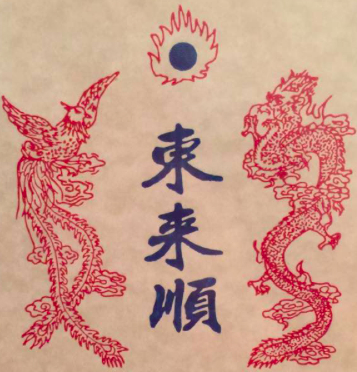 東来順